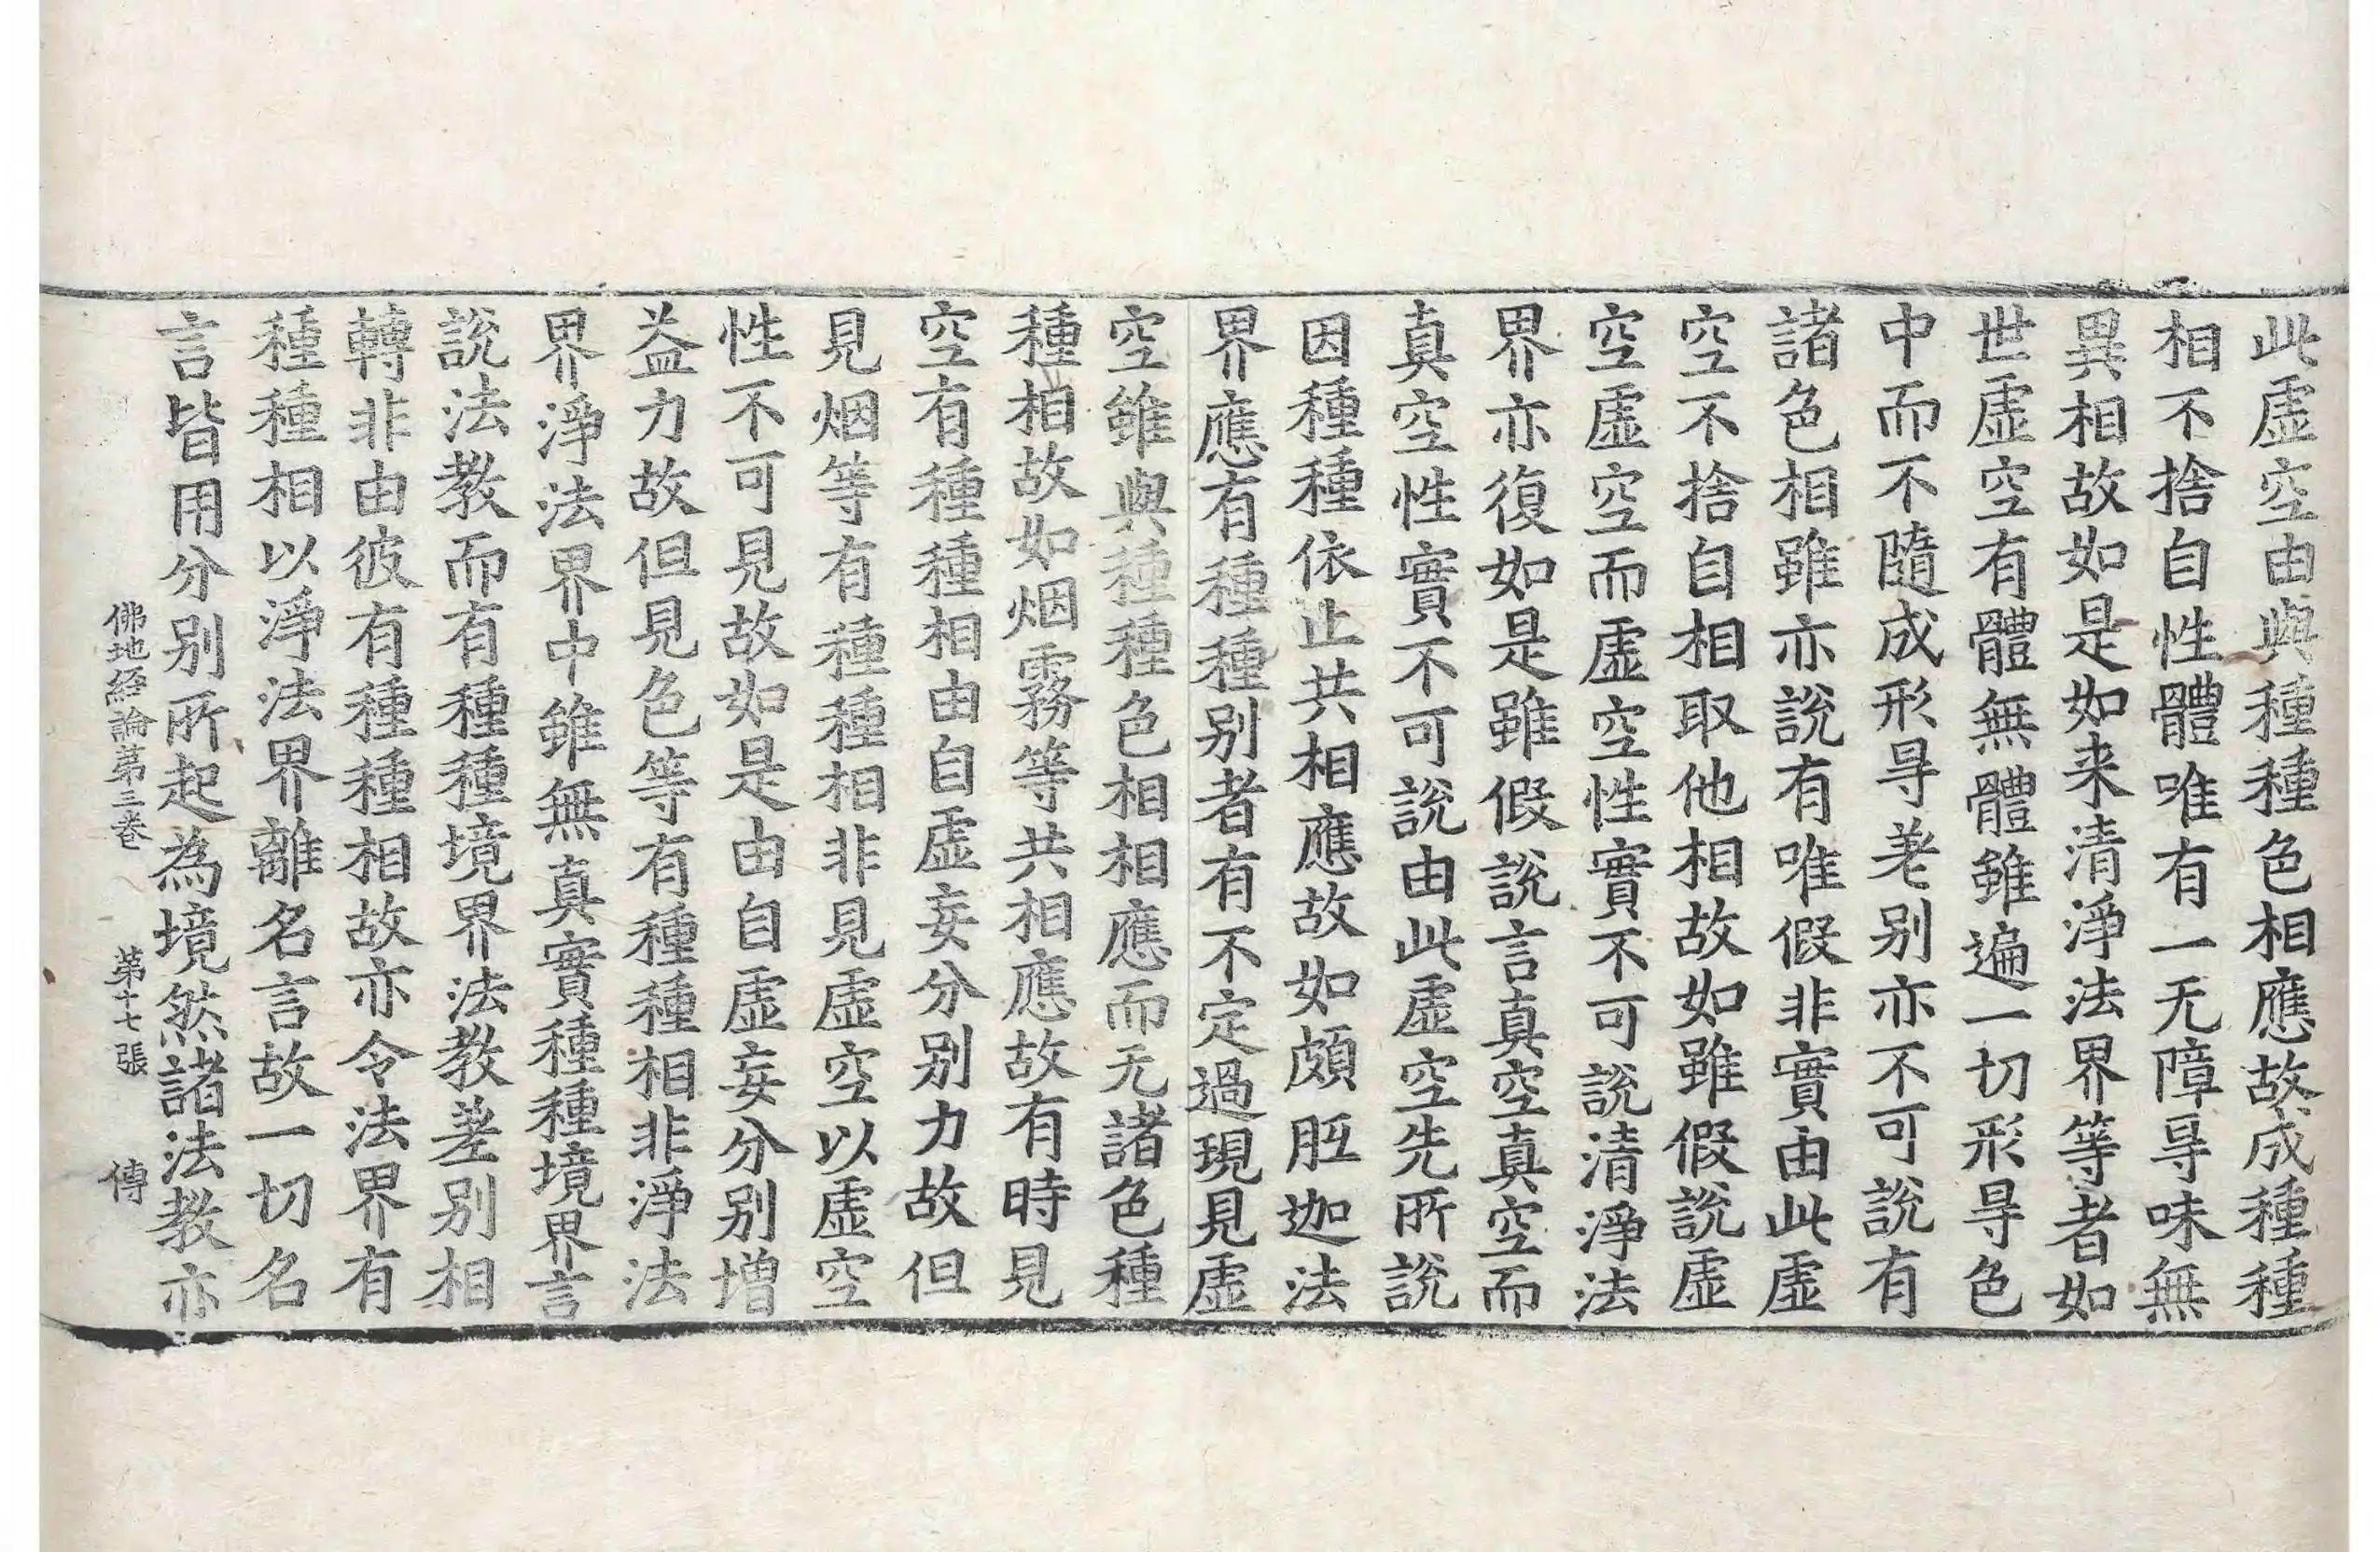 此虛空由與種種色相應故成種種
相不捨自性體唯有一无障㝵味無
異相故如是如来清淨法界等者如
世虛空有體無體雖遍一切形㝵色
中而不隨成形㝵差别亦不可說有
諸色相雖亦說有唯假非實由此虛
空不捨自相取他相故如雖假說虛
空虛空而虛空性實不可說清淨法
界亦復如是雖假說言真空真空而
真空性實不可說由此虛空先所說
因種種依止共相應故如頗胝迦法
界應有種種别者有不定過現見虛
空雖與種種色相相應而无諸色種
種相故如烟霧等共相應故有時見
空有種種相由自虛妄分别力故但
見烟等有種種相非見虛空以虛空
性不可見故如是由自虛妄分别增
益力故但見色等有種種相非淨法
界淨法界中雖無真實種種境界言
說法教而有種種境界法教差别相
轉非由彼有種種相故亦令法界有
種種相以淨法界離名言故一切名
言皆用分别所起為境然諸法教亦
佛地經論第三卷 第十七張 傳